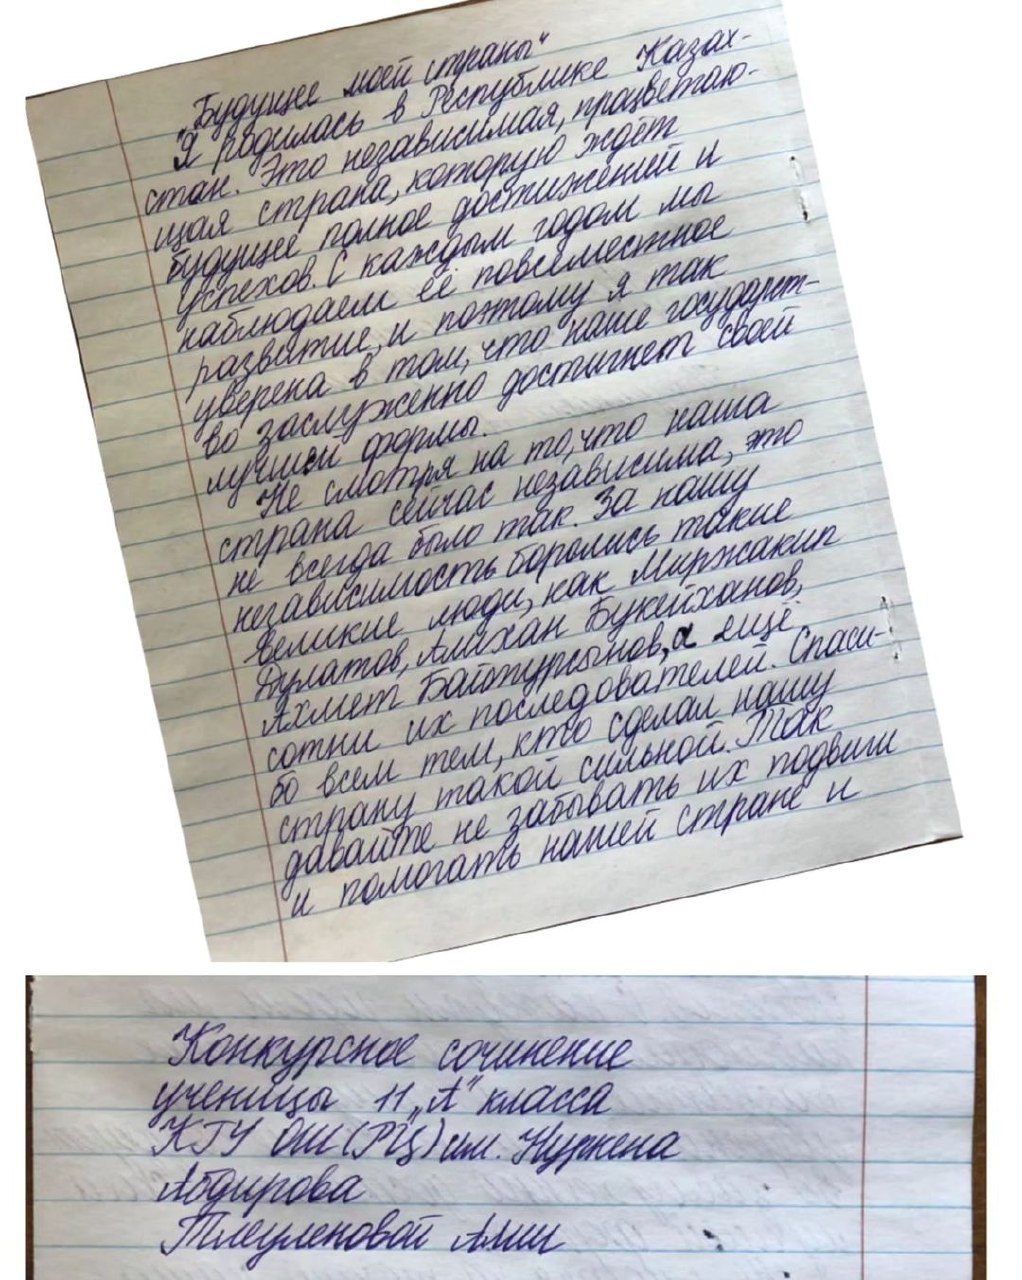 „Будущее моей страны"
"Я родилась в Республике Казах-
стан. Это независимая, процветаю-
щая страна, которую ждёт
будущее полное достижений и
успехов. С каждым годом мы
наблюдаем её повсеместное
развитие, и поэтому я так
уверена в том, что наше государст-
во заслуженно достигнет своей
лучшей формы.
Не смотря на то, что наша
страна сейчас независима, это
не всегда было так. За нашу
независимость боролись такие
великие люди, как Миржакип
Дулатов, Алихан Букейханов,
Ахмет Байтурсынов, а ещё
сотни их последователей. Спаси-
бо всем тем, кто сделал нашу
страну такой сильной. Так
давайте не забывать их подвиги
и помогать нашей стране и
Конкурсное сочинение
ученицы 11 „А" класса
КГУ ОШ (РЦ) им. Нуркена
Абдирова
Тлеуленовой Алии